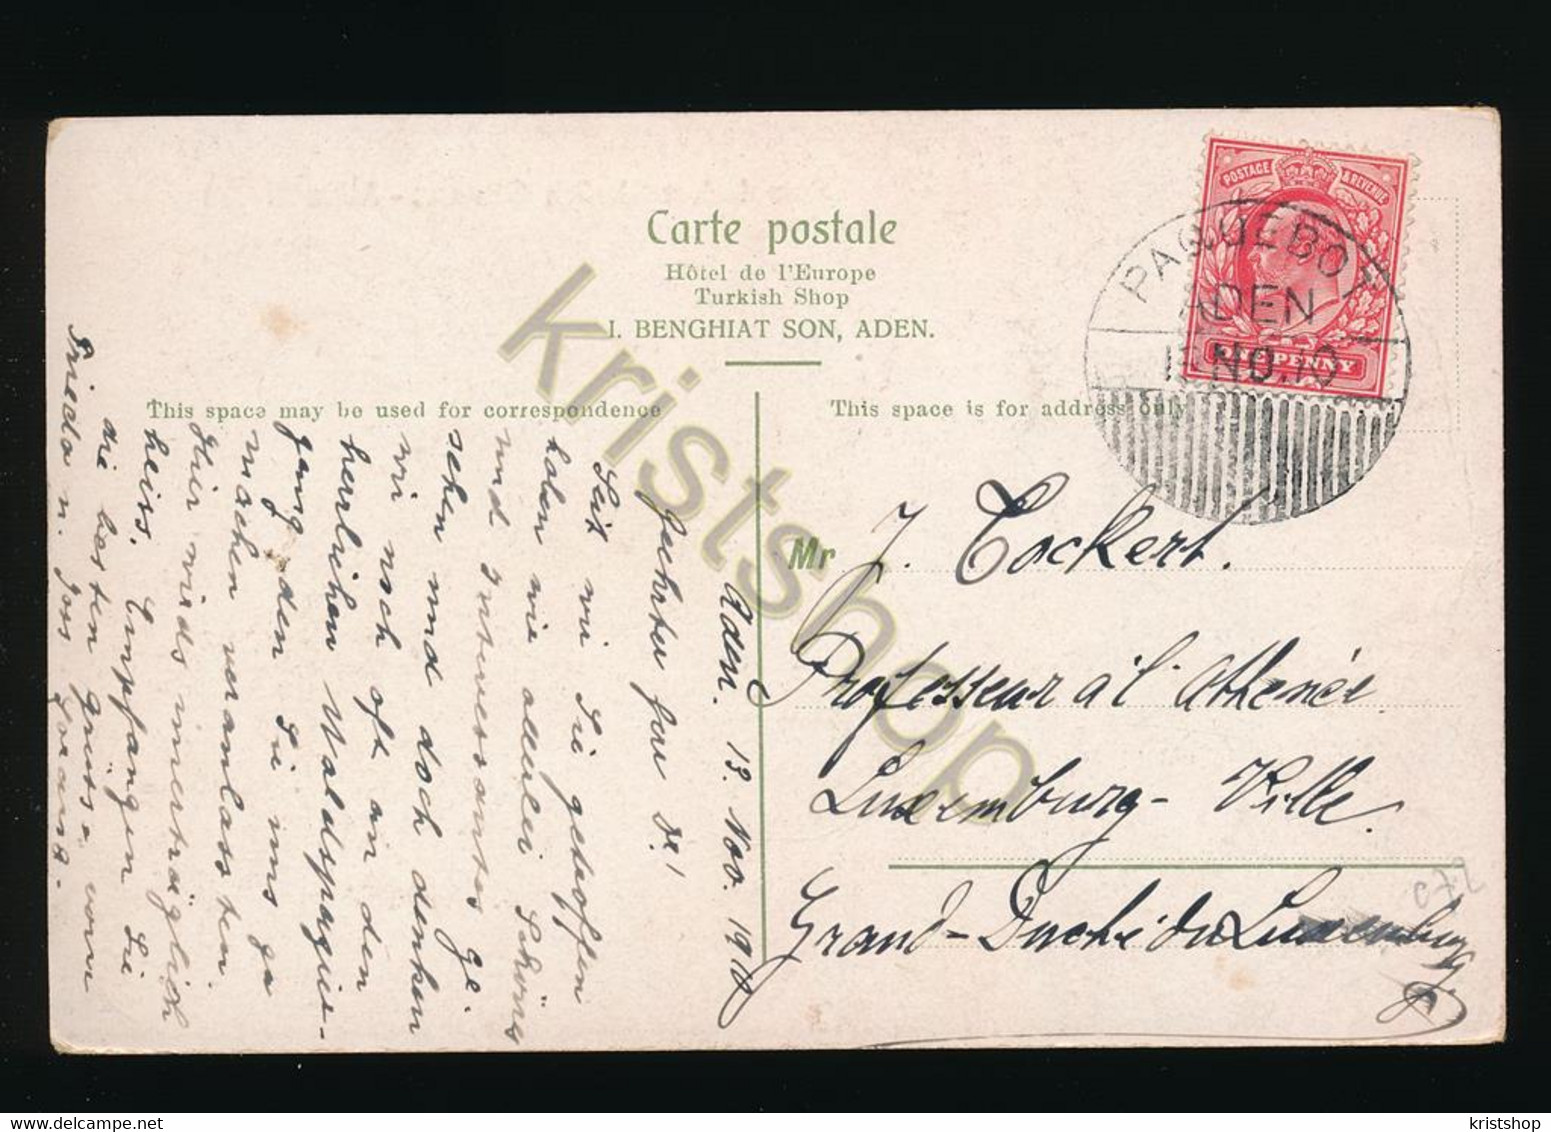 Carte postale
Hôtel de l'Europe
Turkish Shop
I. BENGHIAT SON, ADEN.
POSTAGE & REVENUE
ONE PENNY
PAQUEBOT
ADEN
NO.10
This space may be used for correspondence
This space is for address only
Mr J. Cockert.
Professeur à l'Athénée
Luxemburg-Ville.
Grand-Duché du Luxemburg
Aden. 13. Nov. 1910
Seit wir Sie getroffen
haben wir allerlei Schönes
und Interessantes ge-
sehen und doch denken
wir noch oft an den
herrlichen Waldspazier-
gang, den Sie uns ja
machen veranlassten.
Hier wirds unerträglich
heiss. Empfangen Sie
die besten Grüsse von
Frieda u. Jos
kristshop
kristshop